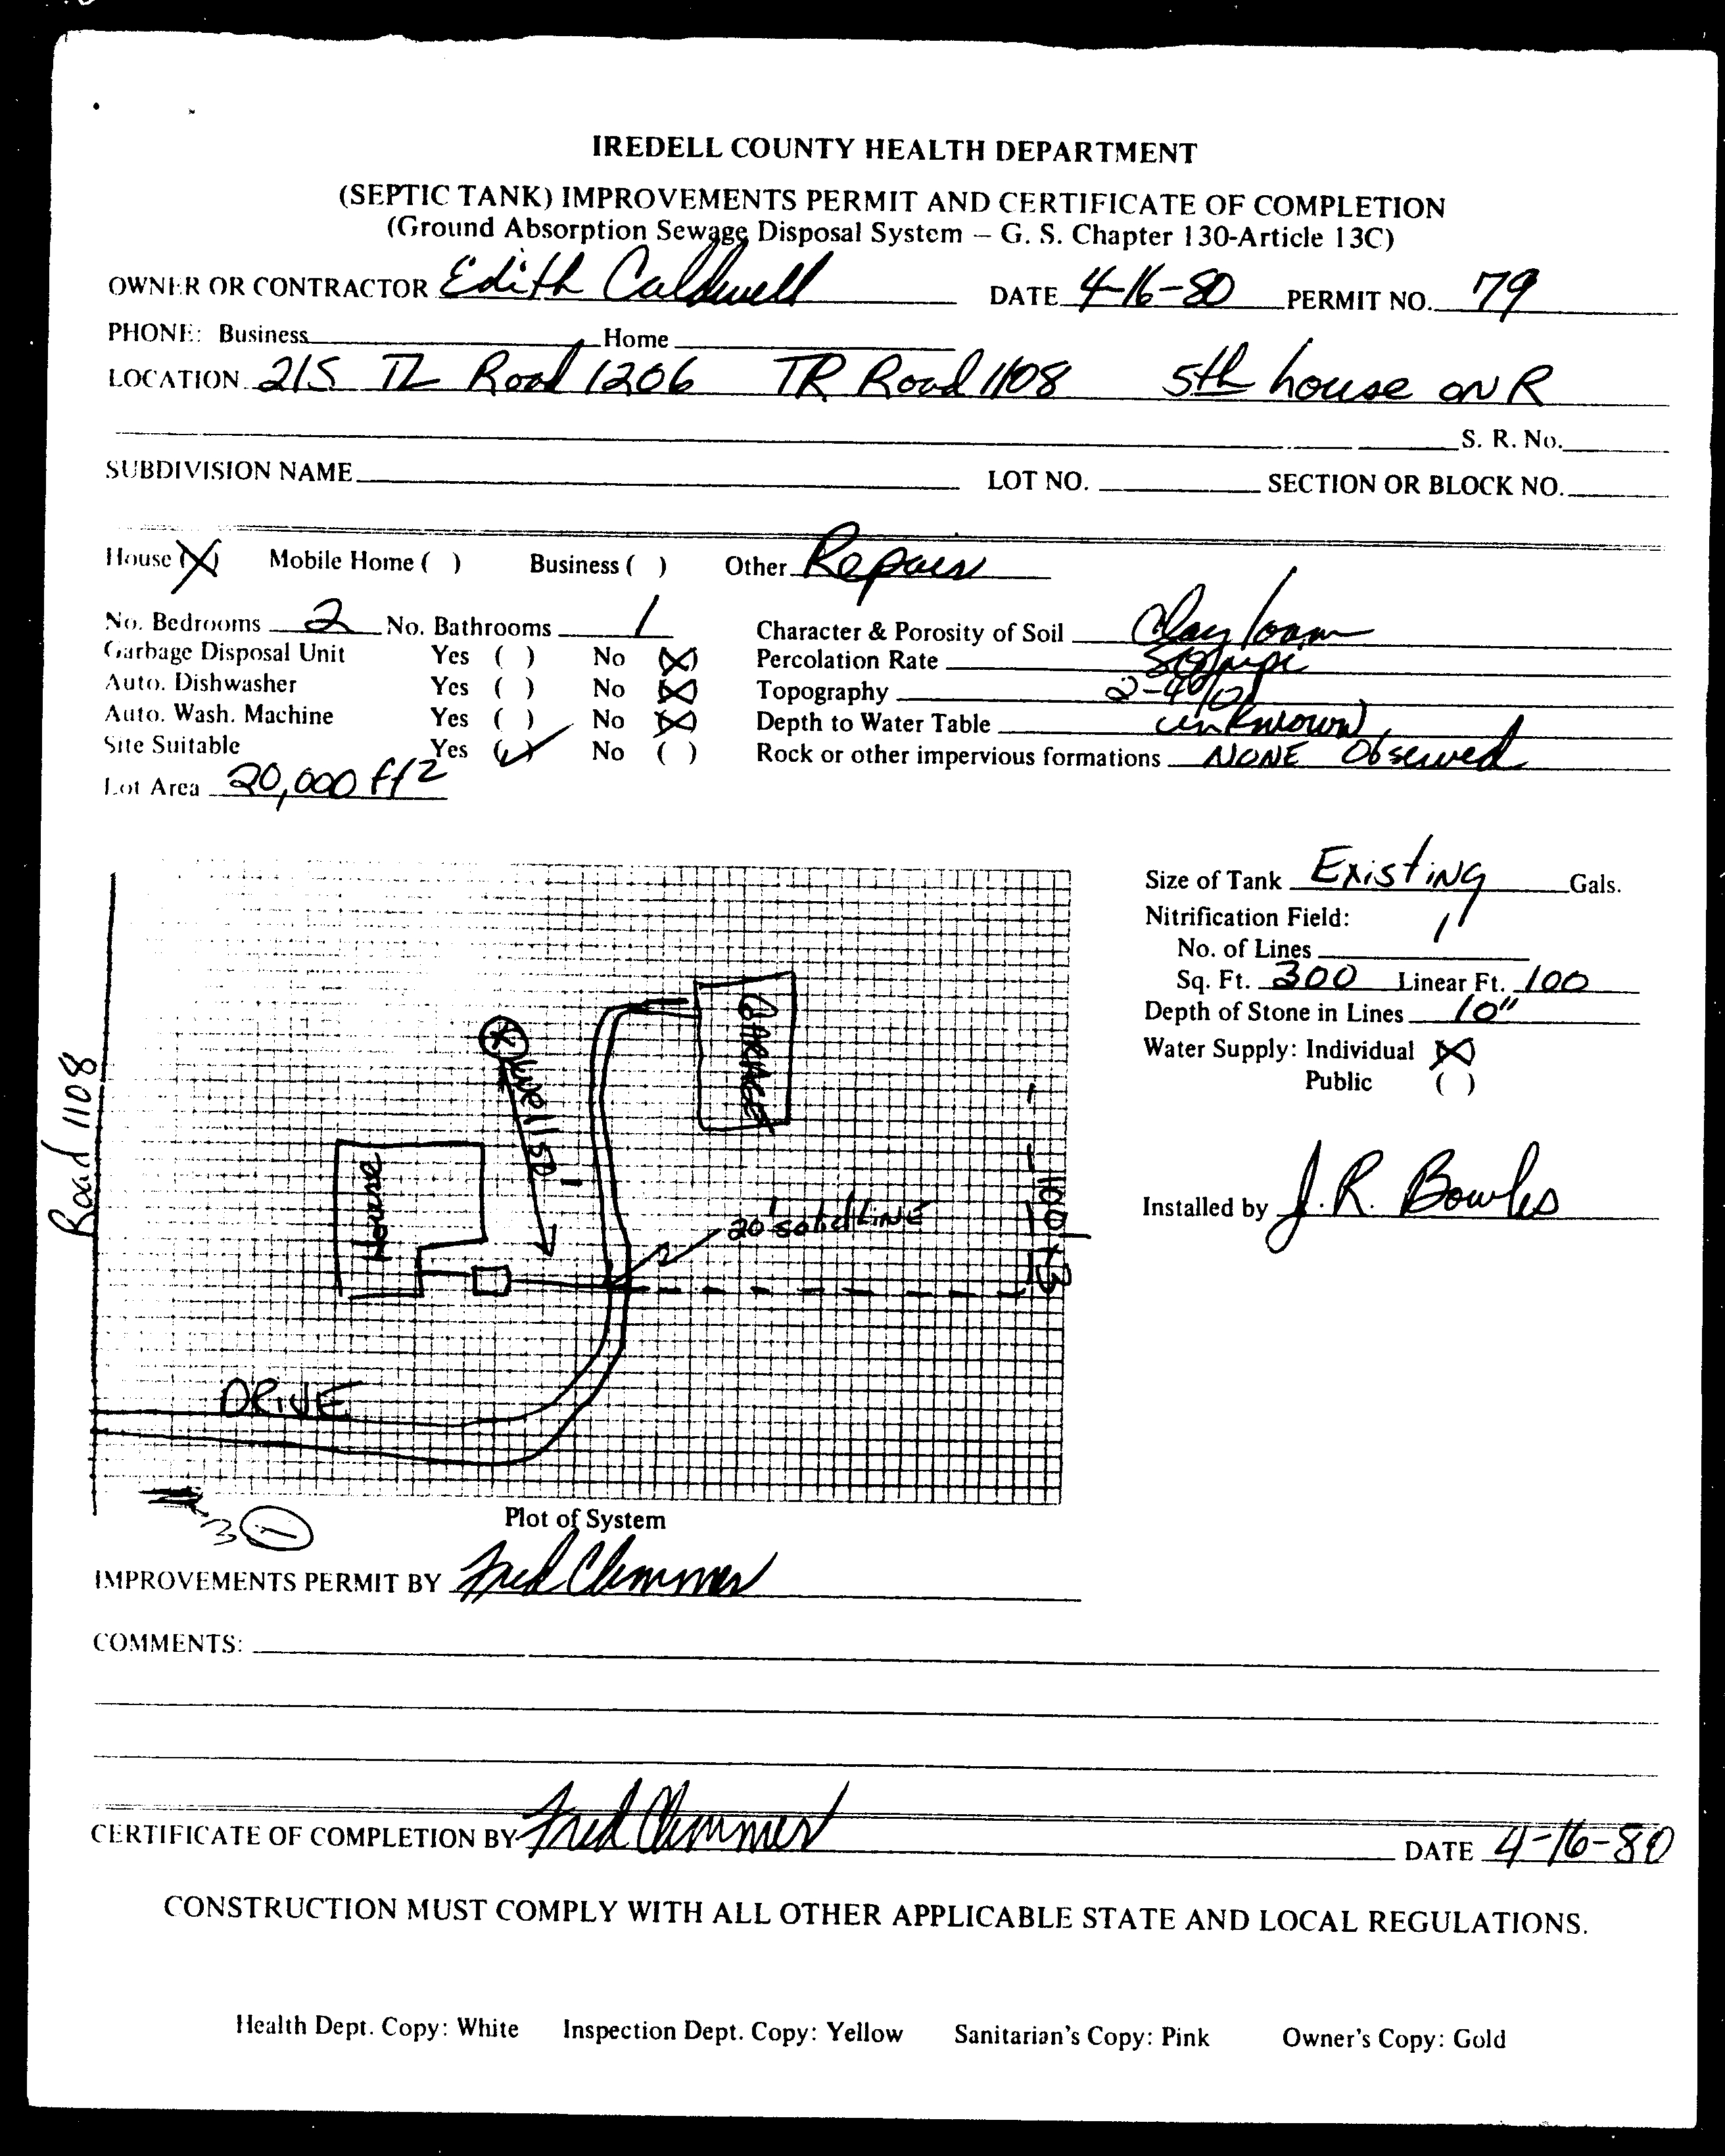 IREDELL COUNTY HEALTH DEPARTMENT
(SEPTIC TANK) IMPROVEMENTS PERMIT AND CERTIFICATE OF COMPLETION
(Ground Absorption Sewage Disposal System – G. S. Chapter 130-Article 13C)
OWNER OR CONTRACTOR Edith Caldwell DATE 4-16-80 PERMIT NO. 79
PHONE: Business Home
LOCATION 21S TL Road 1206 TR Road 1108 5th house on R
S. R. No.
SUBDIVISION NAME LOT NO. SECTION OR BLOCK NO.
House (X) Mobile Home ( ) Business ( ) Other Repair
No. Bedrooms 2 No. Bathrooms 1 Character & Porosity of Soil Clay loam
Garbage Disposal Unit Yes ( ) No (X) Percolation Rate
Auto. Dishwasher Yes ( ) No (X) Topography 2-4%
Auto. Wash. Machine Yes ( ) No (X) Depth to Water Table unknown
Site Suitable Yes (✓) No ( ) Rock or other impervious formations NONE Observed
Lot Area 20,000 ft2
Size of Tank Existing Gals.
Nitrification Field:
No. of Lines 1
Sq. Ft. 300 Linear Ft. 100
Depth of Stone in Lines 10"
Water Supply: Individual (X)
Public ( )
Installed by J.R. Bowles
Road 1108
GARAGE
Well 50'
House
20' solid LINE
100' x 3
DRIVE
3
Plot of System
IMPROVEMENTS PERMIT BY Fred Clemmer
COMMENTS:
CERTIFICATE OF COMPLETION BY Fred Clemmer DATE 4-16-80
CONSTRUCTION MUST COMPLY WITH ALL OTHER APPLICABLE STATE AND LOCAL REGULATIONS.
Health Dept. Copy: White Inspection Dept. Copy: Yellow Sanitarian's Copy: Pink Owner's Copy: Gold